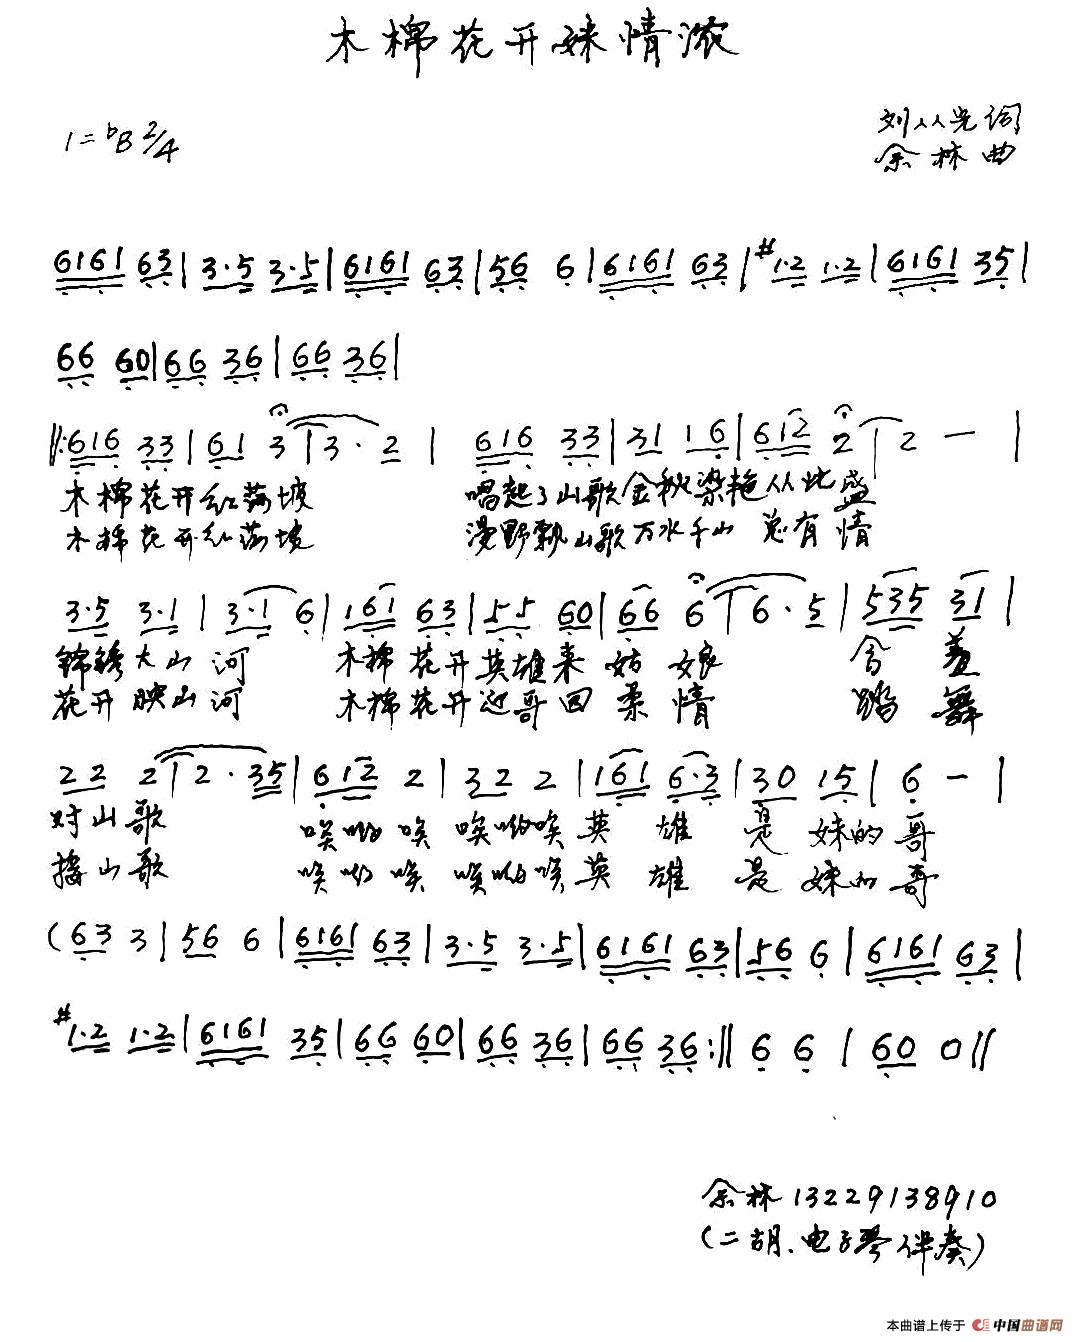 木棉花开妹情浓
1=bB 2/4
刘从光词
余林曲
6161 63|3·5 3·5|6161 63|56 6|6161 63|#1·2 1·2|6161 35|
66 60|66 36|66 36|
‖:616 33|61 3|3·2| 616 33|31 16|612 2|2 —|
木棉花开红满坡 唱起了山歌金秋染艳从此盛
木棉花开红满坡 漫野飘山歌万水千山总有情
3·5 3·1|3·1 6|161 63|55 60|66 6|6·5|535 31|
锦绣大山河 木棉花开英雄来姑娘 含羞
花开映山河 木棉花开迎哥回柔情 踏舞
22 2|2·35|612 2|32 2|161 6·3|30 15|6 —|
对山歌 唉哟唉 唉哟唉英雄是妹的哥
接山歌 唉哟唉 唉哟唉英雄是妹的哥
(63 3|56 6|6161 63|3·5 3·5|6161 63|56 6|6161 63|
#1·2 1·2|6161 35|66 60|66 36|66 36:‖6 6|60 0‖
余林13229138910
(二胡、电子琴伴奏)
本曲谱上传于 中国曲谱网